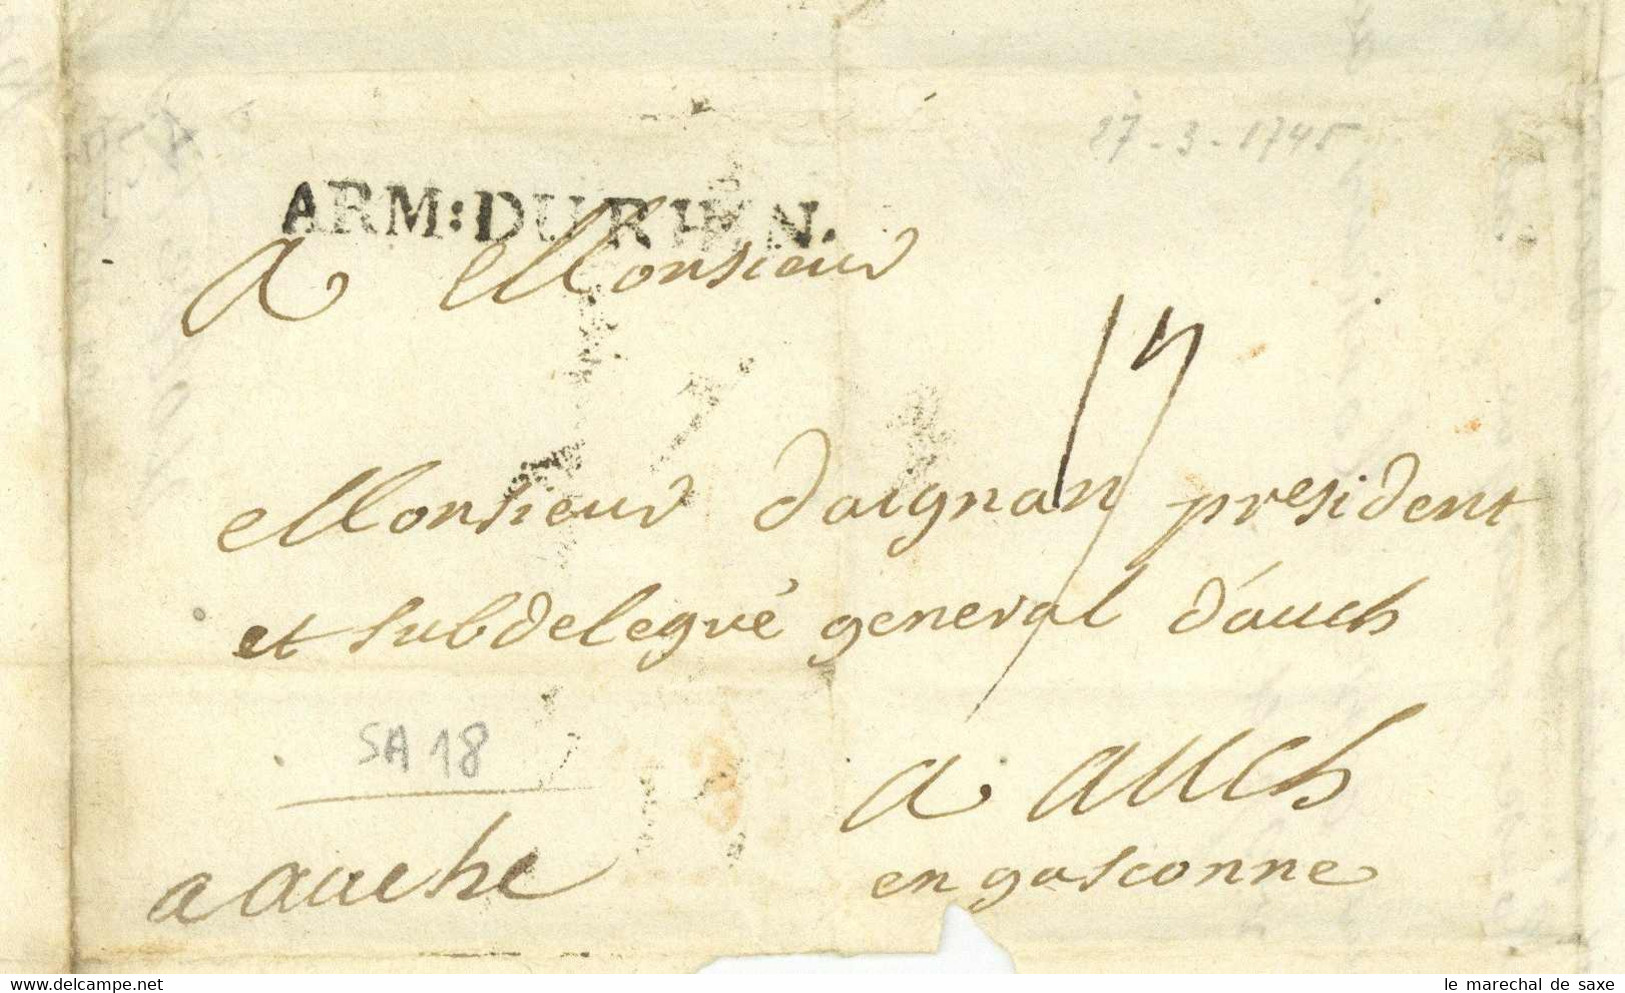 27-3-1745
ARM:DU RHIN.
A Monsieur
17
Monsieur daignan president
et subdelegué general d'auch
SA 18
a auch
en gasconne
a auche
www.delcampe.net
le marechal de saxe